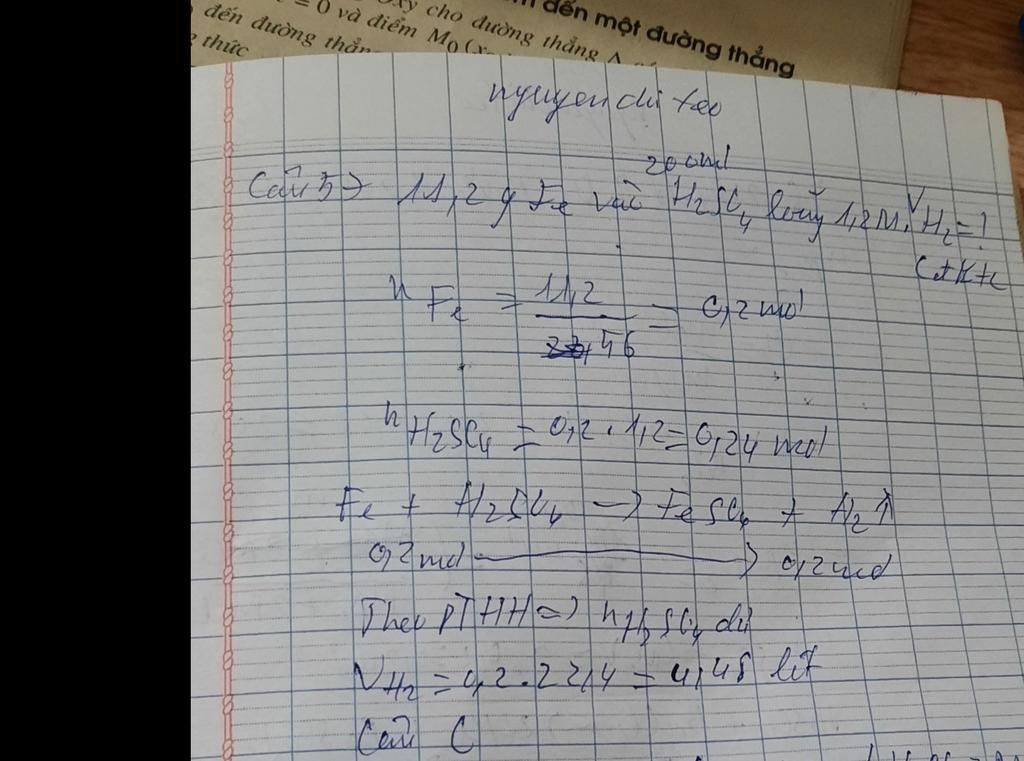 đến một đường thẳng
= 0 và điểm M₀(x₀ Oxy cho đường thẳng Δ
đến đường thẳng
thức
nguyen du teo
200ml
Câu 5 → 11,2 g Fe vào H₂SO₄ loãng 1,2M. V H₂ = ?
n Fe = 11,2 / 56 = 0,2 mol
n H₂SO₄ = 0,2 . 1,2 = 0,24 mol
Fe + H₂SO₄ → FeSO₄ + H₂↑
0,2 mol → 0,2 mol
Theo PTHH => n H₂SO₄ dư
V H₂ = 0,2 . 22,4 = 4,48 lít
Câu C